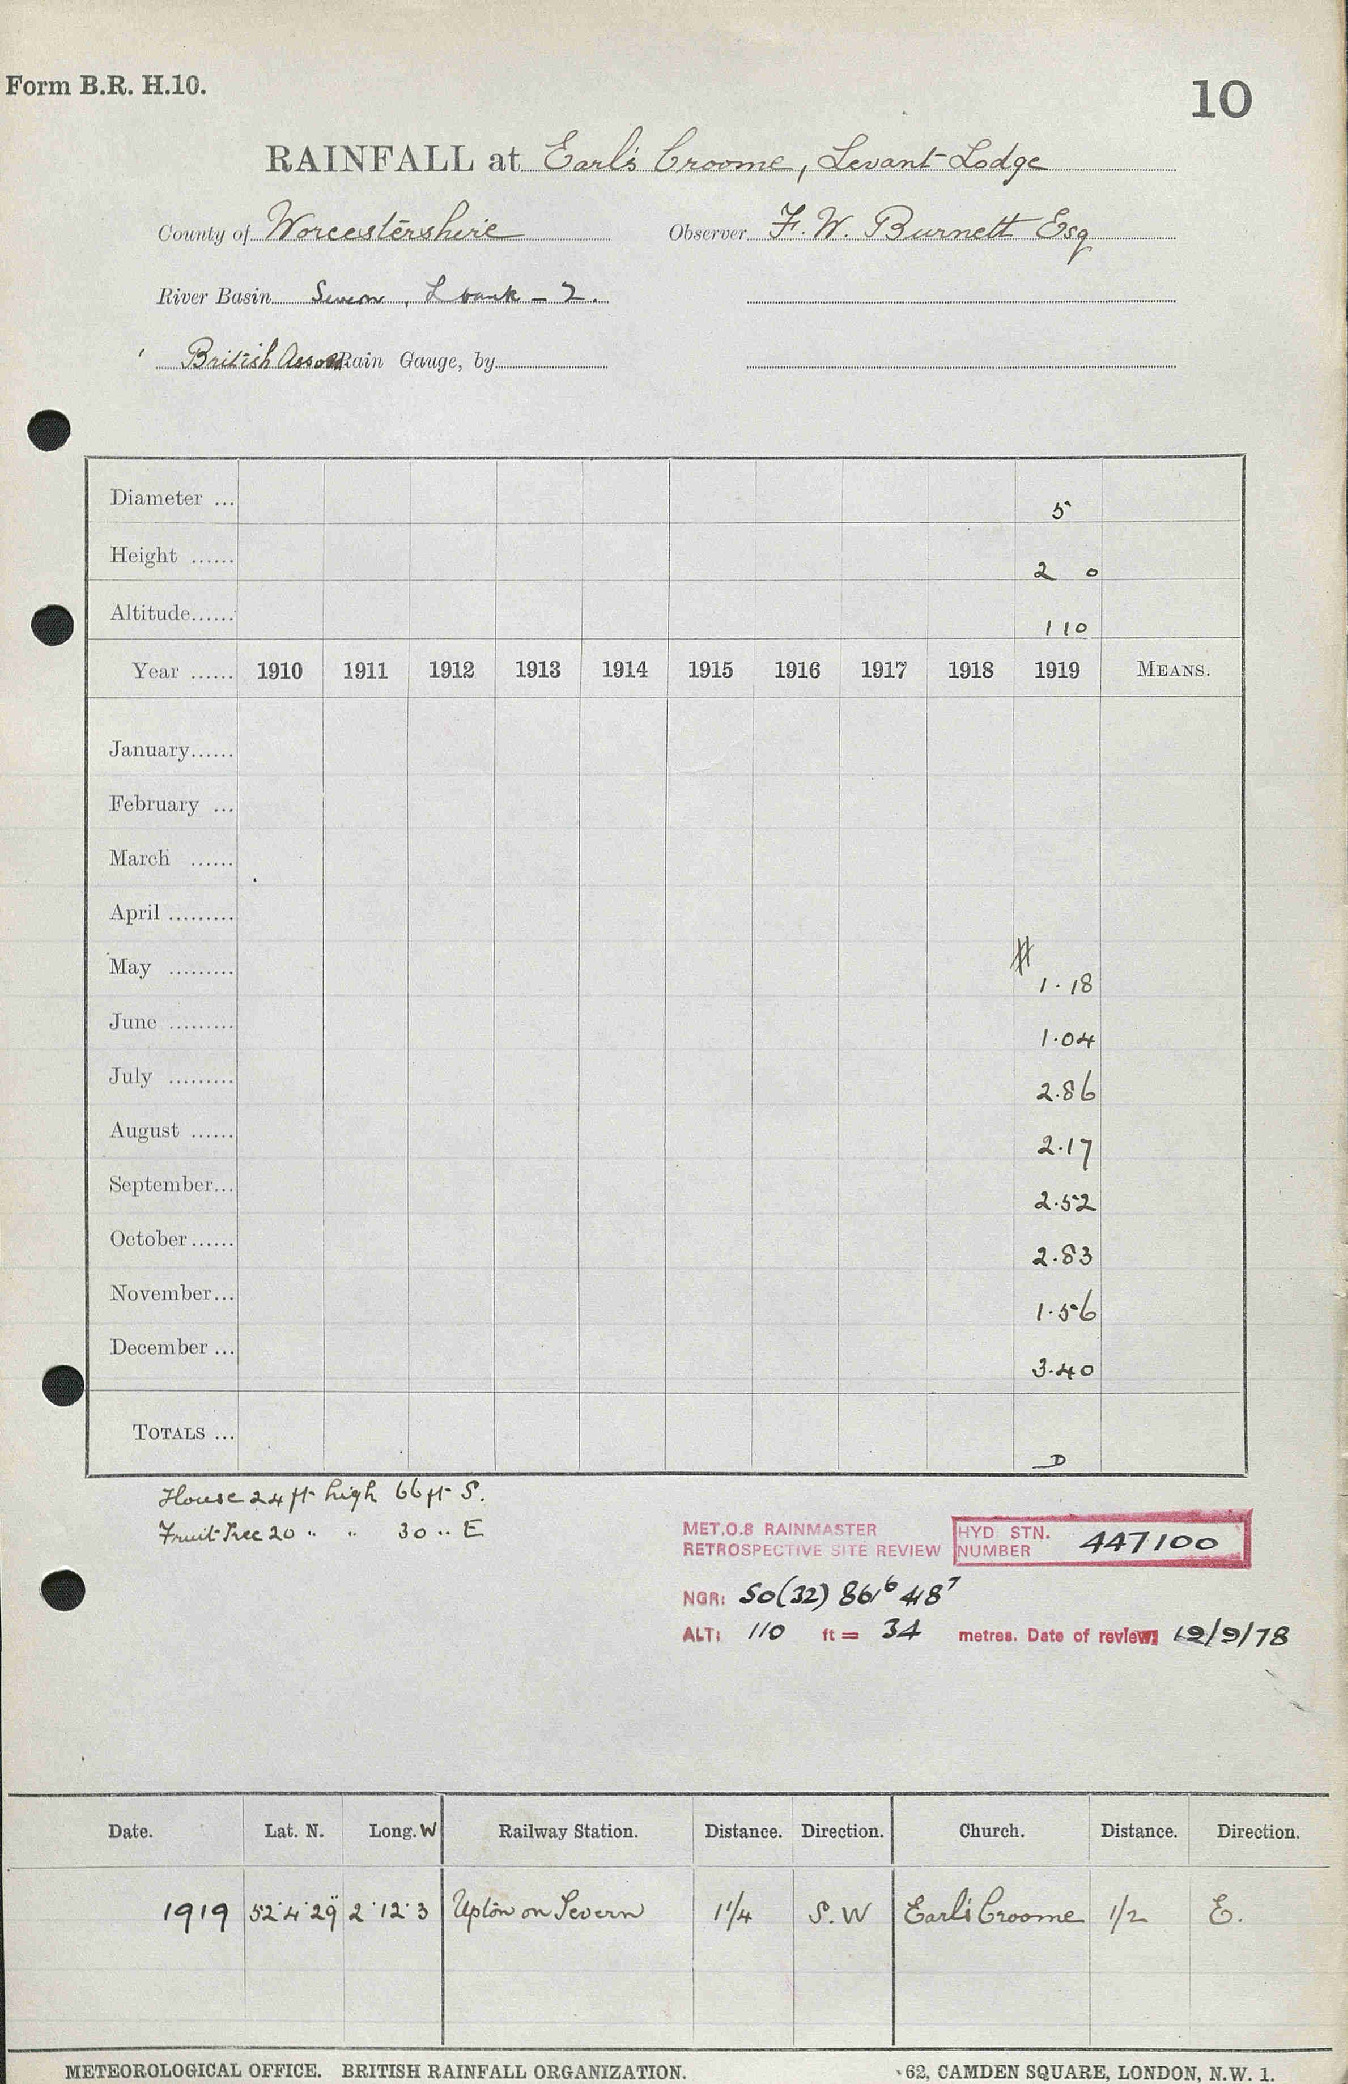 Form B.R. H.10.
10
RAINFALL at Earl's Croome, Levant Lodge
County of Worcestershire Observer F. W. Burnett Esq
River Basin Severn, L bank - 2.
British Assoc Rain Gauge, by
Diameter ... 5
Height ...... 2 0
Altitude...... 110
Year ...... 1910 1911 1912 1913 1914 1915 1916 1917 1918 1919 MEANS.
January......
February ...
March ......
April .........
May ......... # 1.18
June ......... 1.04
July ......... 2.86
August ...... 2.17
September... 2.52
October...... 2.83
November... 1.56
December ... 3.40
TOTALS ... D
House 24 ft high 66 ft S.
Fruit Tree 20 " " 30 " E
MET.O.8 RAINMASTER
RETROSPECTIVE SITE REVIEW
HYD STN.
NUMBER 447100
NGR: SO(32) 861⁶ 418⁷
ALT: 110 ft = 34 metres. Date of review: 12/9/78
Date. Lat. N. Long. W Railway Station. Distance. Direction. Church. Distance. Direction.
1919 52° 4' 29" 2° 12' 3 Upton on Severn 1 1/4 S.W Earl's Croome 1/2 E.
METEOROLOGICAL OFFICE. BRITISH RAINFALL ORGANIZATION. 62, CAMDEN SQUARE, LONDON, N.W. 1.